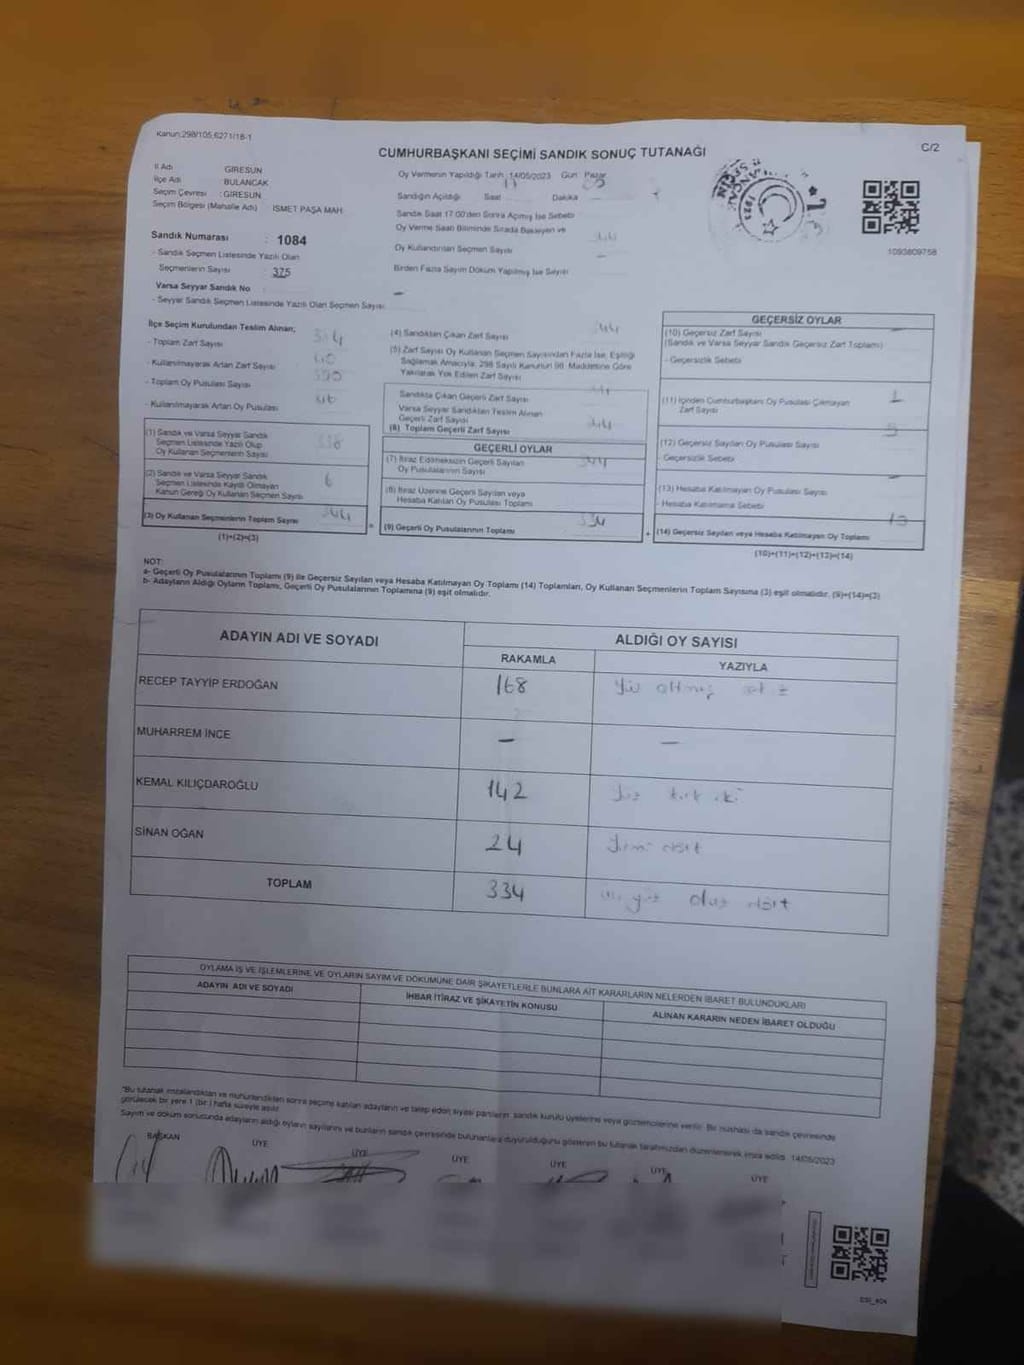 Kanun:298/105,6271/18-1
C/2
CUMHURBAŞKANI SEÇİMİ SANDIK SONUÇ TUTANAĞI
İl Adı : GİRESUN
İlçe Adı : BULANCAK
Seçim Çevresi : GİRESUN
Seçim Bölgesi (Mahalle Adı) İSMET PAŞA MAH.
Sandık Numarası : 1084
- Sandık Seçmen Listesinde Yazılı Olan
Seçmenlerin Sayısı : 375
Varsa Seyyar Sandık No
- Seyyar Sandık Seçmen Listesinde Yazılı Olan Seçmen Sayısı: -
Oy Vermenin Yapıldığı Tarih :14/05/2023 Gün: Pazar
Sandığın Açıldığı Saat Dakika
Sandık Saat 17:00'den Sonra Açılmış İse Sebebi
Oy Verme Saati Bitiminde Sırada Bekleyen ve
Oy Kullandırılan Seçmen Sayısı
Birden Fazla Sayım Döküm Yapılmış İse Sayısı
1093809758
İlçe Seçim Kurulundan Teslim Alınan;
- Toplam Zarf Sayısı
- Kullanılmayarak Artan Zarf Sayısı
- Toplam Oy Pusulası Sayısı
- Kullanılmayarak Artan Oy Pusulası
(1) Sandık ve Varsa Seyyar Sandık
Seçmen Listesinde Yazılı Olup
Oy Kullanan Seçmenlerin Sayısı 338
(2) Sandık ve Varsa Seyyar Sandık
Seçmen Listesinde Kayıtlı Olmayan
Kanun Gereği Oy Kullanan Seçmen Sayısı 6
(3) Oy Kullanan Seçmenlerin Toplam Sayısı 344
(1)+(2)=(3)
(4) Sandıktan Çıkan Zarf Sayısı 344
(5) Zarf Sayısı Oy Kullanan Seçmen Sayısından Fazla İse, Eşitliği
Sağlamak Amacıyla, 298 Sayılı Kanunun 98. Maddesine Göre
Yakılarak Yok Edilen Zarf Sayısı
Sandıkta Çıkan Geçerli Zarf Sayısı
Varsa Seyyar Sandıktan Teslim Alınan
Geçerli Zarf Sayısı
(6) Toplam Geçerli Zarf Sayısı 344
GEÇERLİ OYLAR
(7) İtiraz Edilmeksizin Geçerli Sayılan
Oy Pusulalarının Sayısı
(8) İtiraz Üzerine Geçerli Sayılan veya
Hesaba Katılan Oy Pusulası Toplamı
(9) Geçerli Oy Pusulalarının Toplamı 334
GEÇERSİZ OYLAR
(10) Geçersiz Zarf Sayısı
(Sandık ve Varsa Seyyar Sandık Geçersiz Zarf Toplamı)
- Geçersizlik Sebebi
(11) İçinden Cumhurbaşkanı Oy Pusulası Çıkmayan
Zarf Sayısı
(12) Geçersiz Sayılan Oy Pusulası Sayısı
Geçersizlik Sebebi
(13) Hesaba Katılmayan Oy Pusulası Sayısı
- Hesaba Katılmama Sebebi
(14) Geçersiz Sayılan veya Hesaba Katılmayan Oy Toplamı 10
(10)+(11)+(12)+(13)=(14)
NOT:
a- Geçerli Oy Pusulalarının Toplamı (9) ile Geçersiz Sayılan veya Hesaba Katılmayan Oy Toplamı (14) Toplamları, Oy Kullanan Seçmenlerin Toplam Sayısına (3) eşit olmalıdır. (9)+(14)=(3)
b- Adayların Aldığı Oyların Toplamı, Geçerli Oy Pusulalarının Toplamına (9) eşit olmalıdır.
ADAYIN ADI VE SOYADI ALDIĞI OY SAYISI
RAKAMLA YAZIYLA
RECEP TAYYİP ERDOĞAN 168 Yüz altmış sekiz
MUHARREM İNCE - -
KEMAL KILIÇDAROĞLU 142 Yüz kırk iki
SİNAN OĞAN 24 Yirmi dört
TOPLAM 334 üç yüz otuz dört
OYLAMA İŞ VE İŞLEMLERİNE VE OYLARIN SAYIM VE DÖKÜMÜNE DAİR ŞİKAYETLERLE BUNLARA AİT KARARLARIN NELERDEN İBARET BULUNDUKLARI
ADAYIN ADI VE SOYADI İHBAR İTİRAZ VE ŞİKAYETİN KONUSU ALINAN KARARIN NEDEN İBARET OLDUĞU
*Bu tutanak imzalandıktan ve mühürlendikten sonra seçime katılan adayların ve talep eden siyasi partilerin sandık kurulu üyelerine veya gözlemcilerine verilir. Bir nüshası da sandık çevresinde
görülecek bir yere 1 (bir) hafta süreyle asılır.
Sayım ve döküm sonucunda adayların aldığı oyların sayılarını ve bunların sandık çevresinde bulunanlara duyurulduğunu gösteren bu tutanak tarafımızdan düzenlenerek imza edildi. 14/05/2023
BAŞKAN ÜYE ÜYE ÜYE ÜYE ÜYE ÜYE